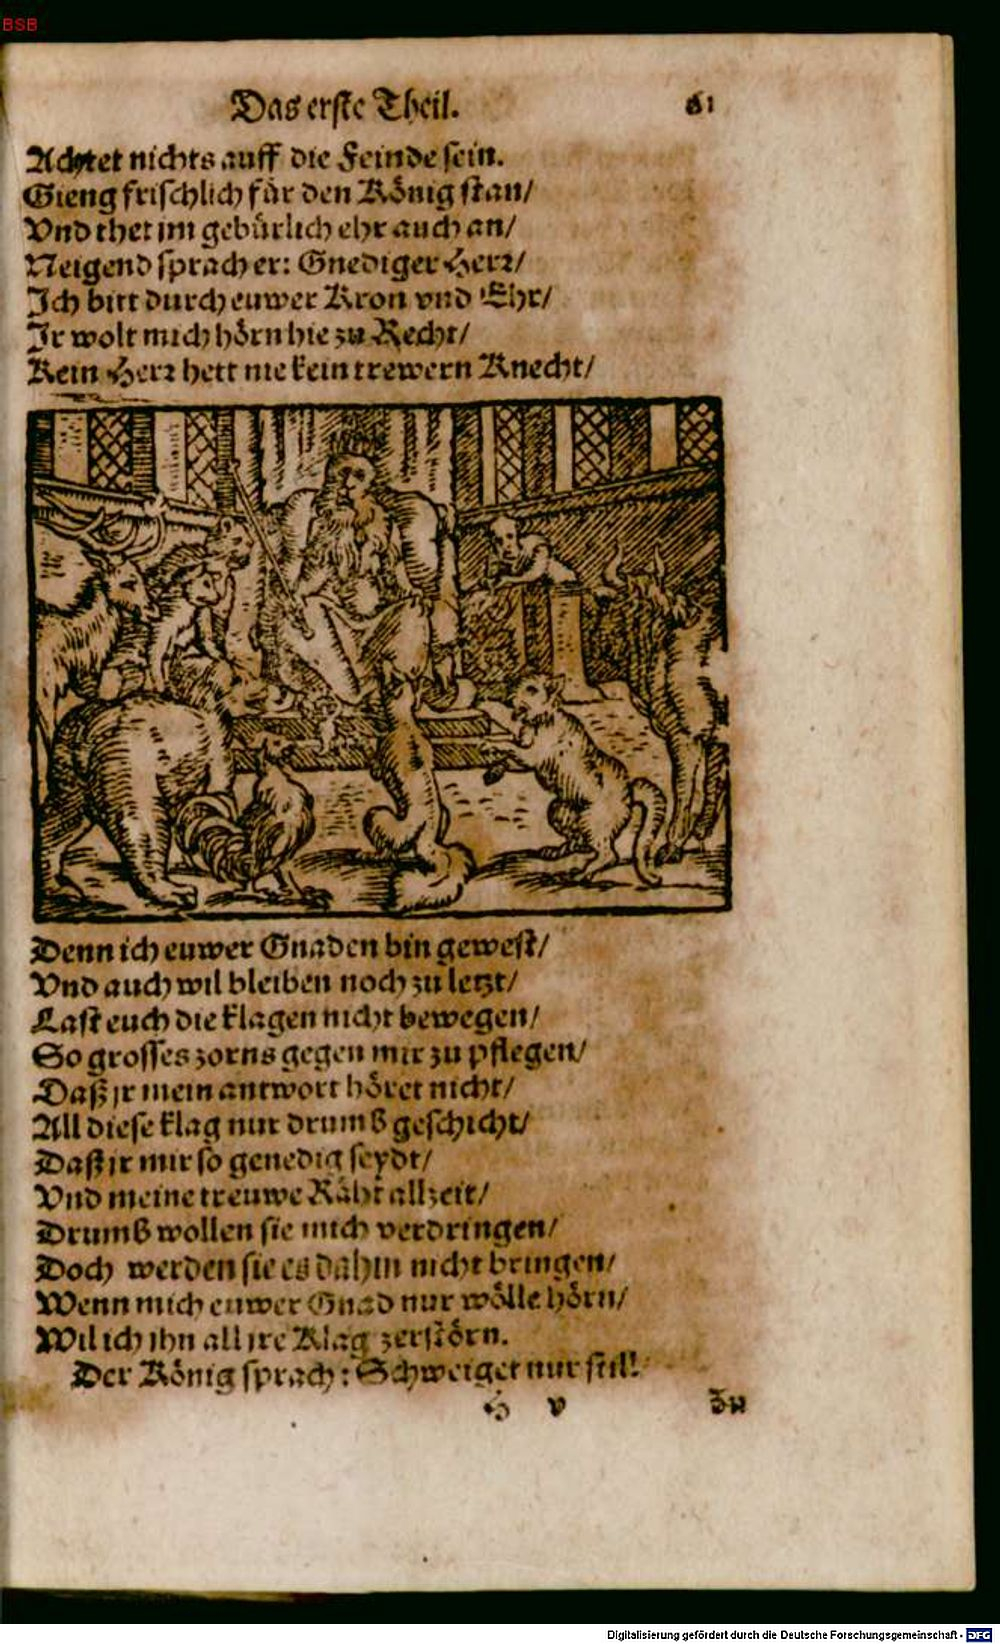 BSB
Das erste Theil. 61
Achtet nichts auff die Feinde sein.
Gieng frischlich für den König stan/
Vnd thet im gebürlich ehr auch an/
Neigend sprach er: Gnediger Herr/
Ich bitt durch euwer Kron vnd Ehr/
Ir wolt mich hörn hie zu Recht/
Kein Herr hett nie kein trewern Knecht/
Denn ich euwer Gnaden bin gewest/
Vnd auch wil bleiben noch zu letzt/
Last euch die klagen nicht bewegen/
So grosses zorns gegen mir zu pflegen/
Daß jr mein antwort höret nicht/
All diese klag nur drumb geschicht/
Daß jr mir so genedig seydt/
Vnd meine treuwe Räht allzeit/
Drumb wollen sie mich verdringen/
Doch werden sie es dahin nicht bringen/
Wenn mich euwer Gnad nur wölle hörn/
Wil ich ihn all jre Klag zerstörn.
Der König sprach: Schweiget nur still.
H v Zu
Digitalisierung gefördert durch die Deutsche Forschungsgemeinschaft - DFG